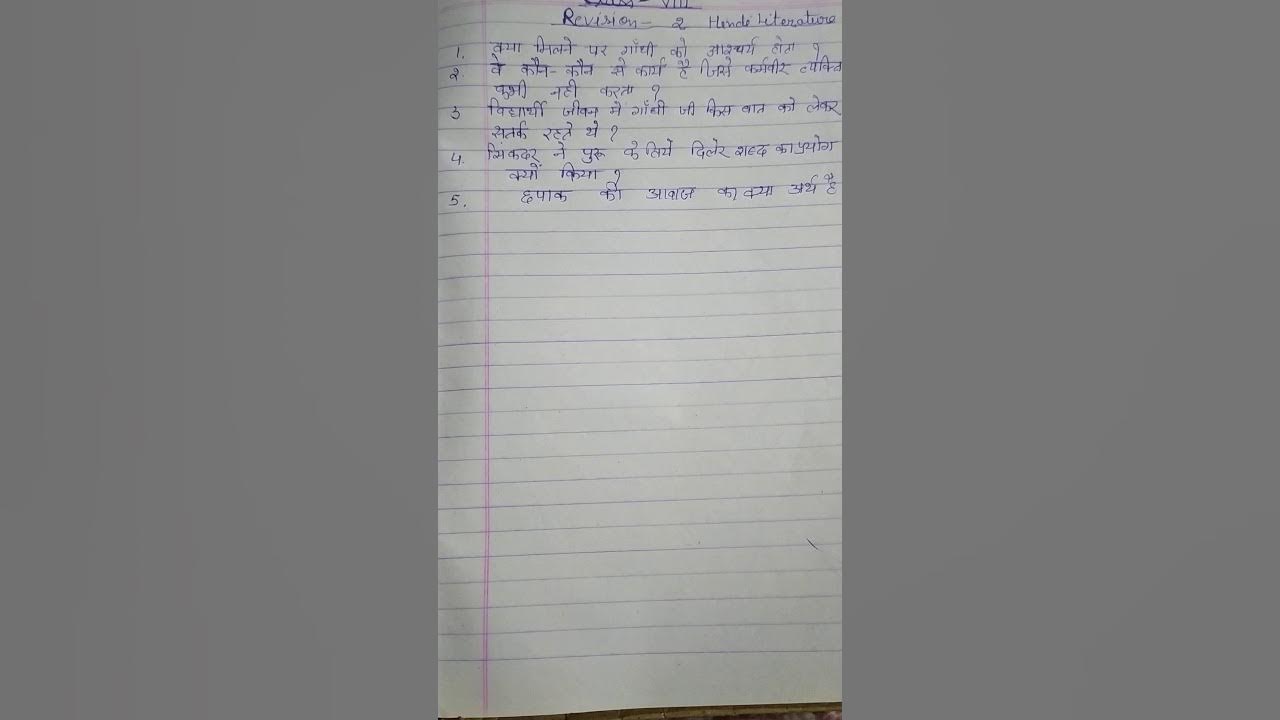 Class - VIII
Revision - 2 Hindi Literature
1. क्या मिलने पर गाँधी को आश्चर्य होता ?
2. वे कौन-कौन से कार्य है जिसे कर्मवीर व्यक्ति
कभी नही करता ?
3 विद्यार्थी जीवन मे गाँधी जी किस बात को लेकर
सतर्क रहते थे ?
4. सिंकदर ने पुरू के लिये दिलेर शब्द का प्रयोग
क्यों किया ?
5. छपाक की आवाज का क्या अर्थ है